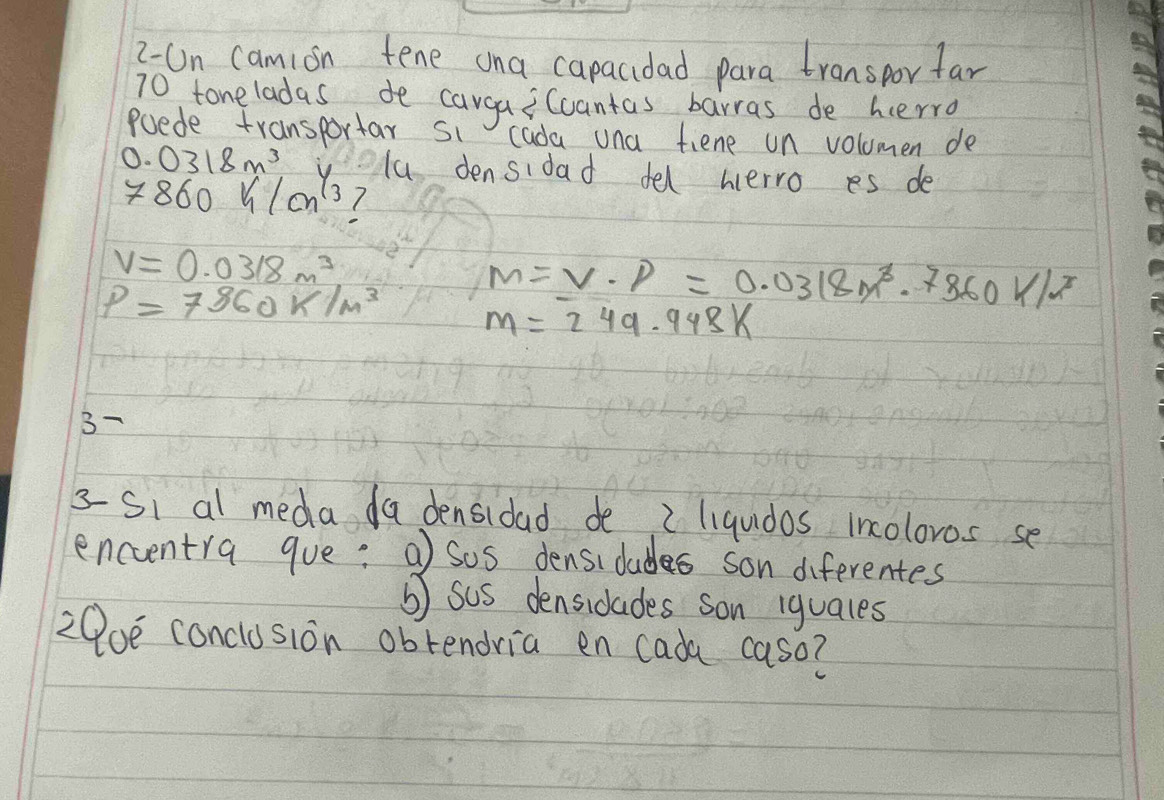 2-Un camión tene una capacidad para transportar
70 toneladas de carga ¿Cuantas barras de hierro
puede transportar si cada una tiene un volumen de
0.0318m³ y la densidad del hierro es de
7860 K/cm³?
V= 0.0318 m³
P= 7860 K/m³
m= V . P = 0.0318m³ . 7860 K/m³
m= 249.948K
3-
3- Si al media la densidad de 2 liquidos incoloros se
encuentra que: a) Sus densidades son diferentes
b) Sus densidades son iguales
¿Qué conclusión obtendría en cada caso?